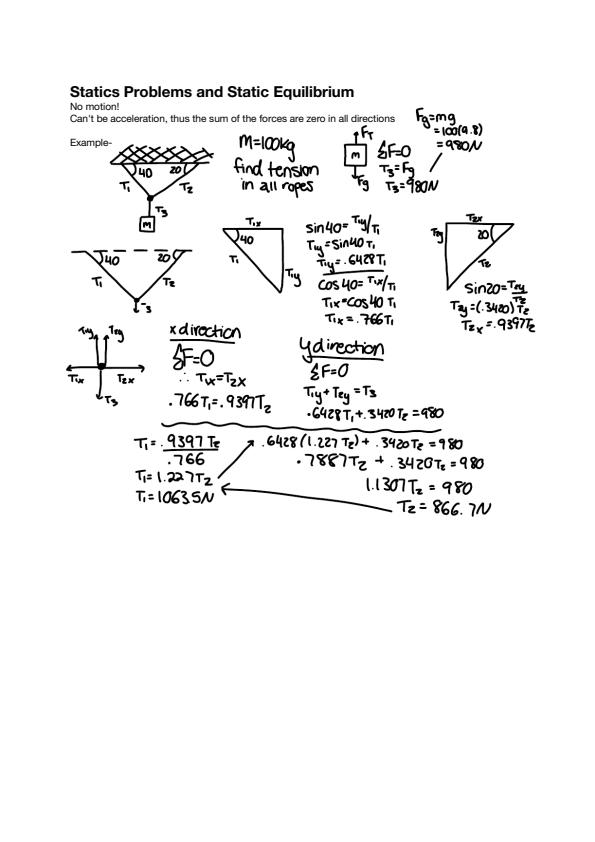 Statics Problems and Static Equilibrium
No motion!
Can't be acceleration, thus the sum of the forces are zero in all directions
Fg=mg
=100(9.8)
=980N
Example-
40 20
T₁ T₂
T₃
M
M=100kg
find tension
in all ropes
FT
M
Fg
ΣF=0
T₃=Fg
T₃=980N
40 20
T₁ T₂
T₁x
40
T₁
T₁y
sin40=T₁y/T₁
T₁y=sin40 T₁
T₁y=.6428T₁
cos40=T₁x/T₁
T₁x=cos40 T₁
T₁x=.766T₁
T₂x
T₂y
20
T₂
sin20=T₂y/T₂
T₂y=(.3420)T₂
T₂x=.9397T₂
T₁y T₂y
T₁x T₂x
T₃
x direction
ΣF=0
∴ T₁x=T₂x
.766T₁=.9397T₂
y direction
ΣF=0
T₁y+T₂y=T₃
.6428T₁+.3420T₂=980
T₁=.9397T₂
.766
T₁=1.227T₂
T₁=1063.5N
.6428(1.227T₂)+.3420T₂=980
.7887T₂+.3420T₂=980
1.1307T₂=980
T₂=866.7N